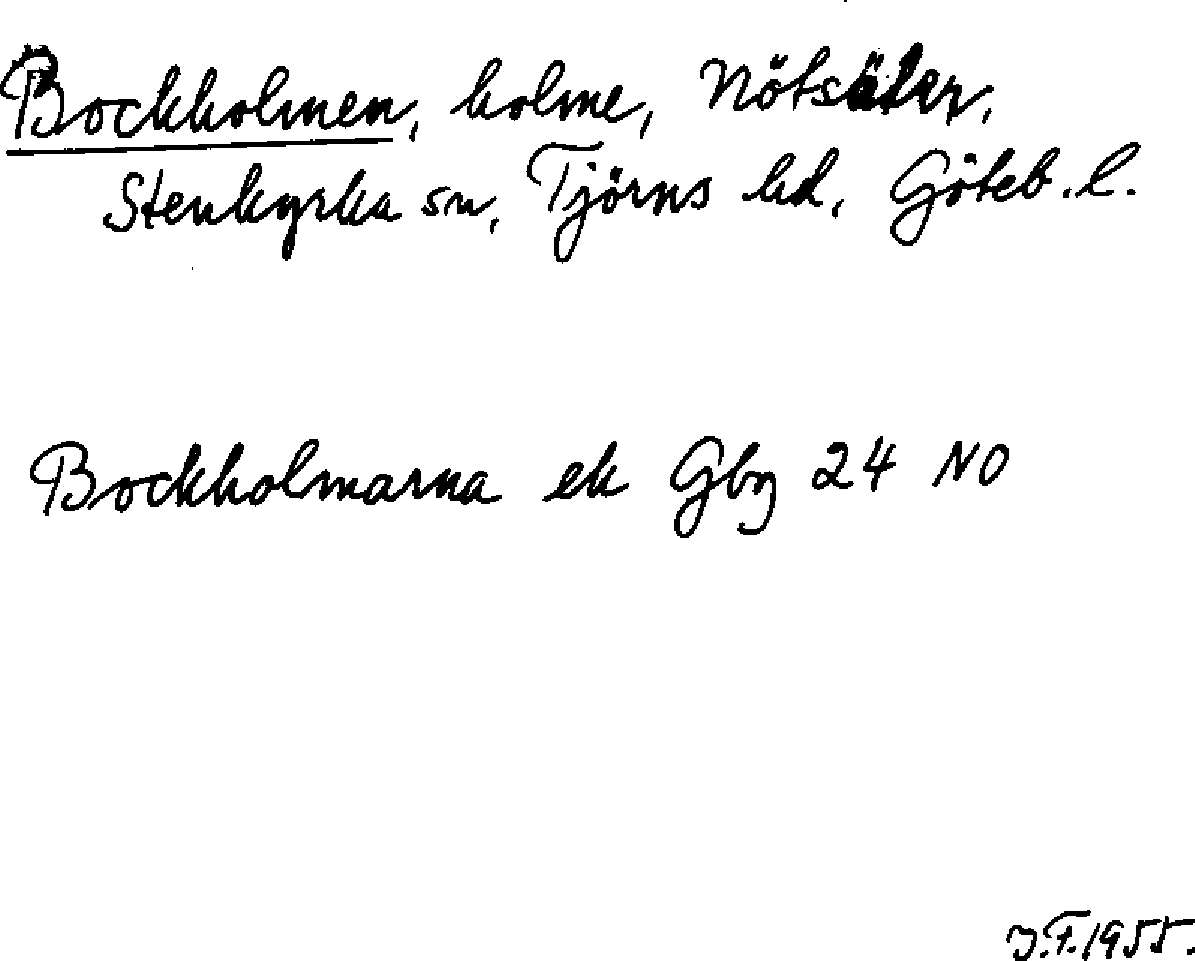 Bockholmen, holme, Nötsäter,
Stenkyrka sn, Tjörns hd, Göteb. l.
Bockholmarna ek Gbg 24 NO
J.F. 1955.